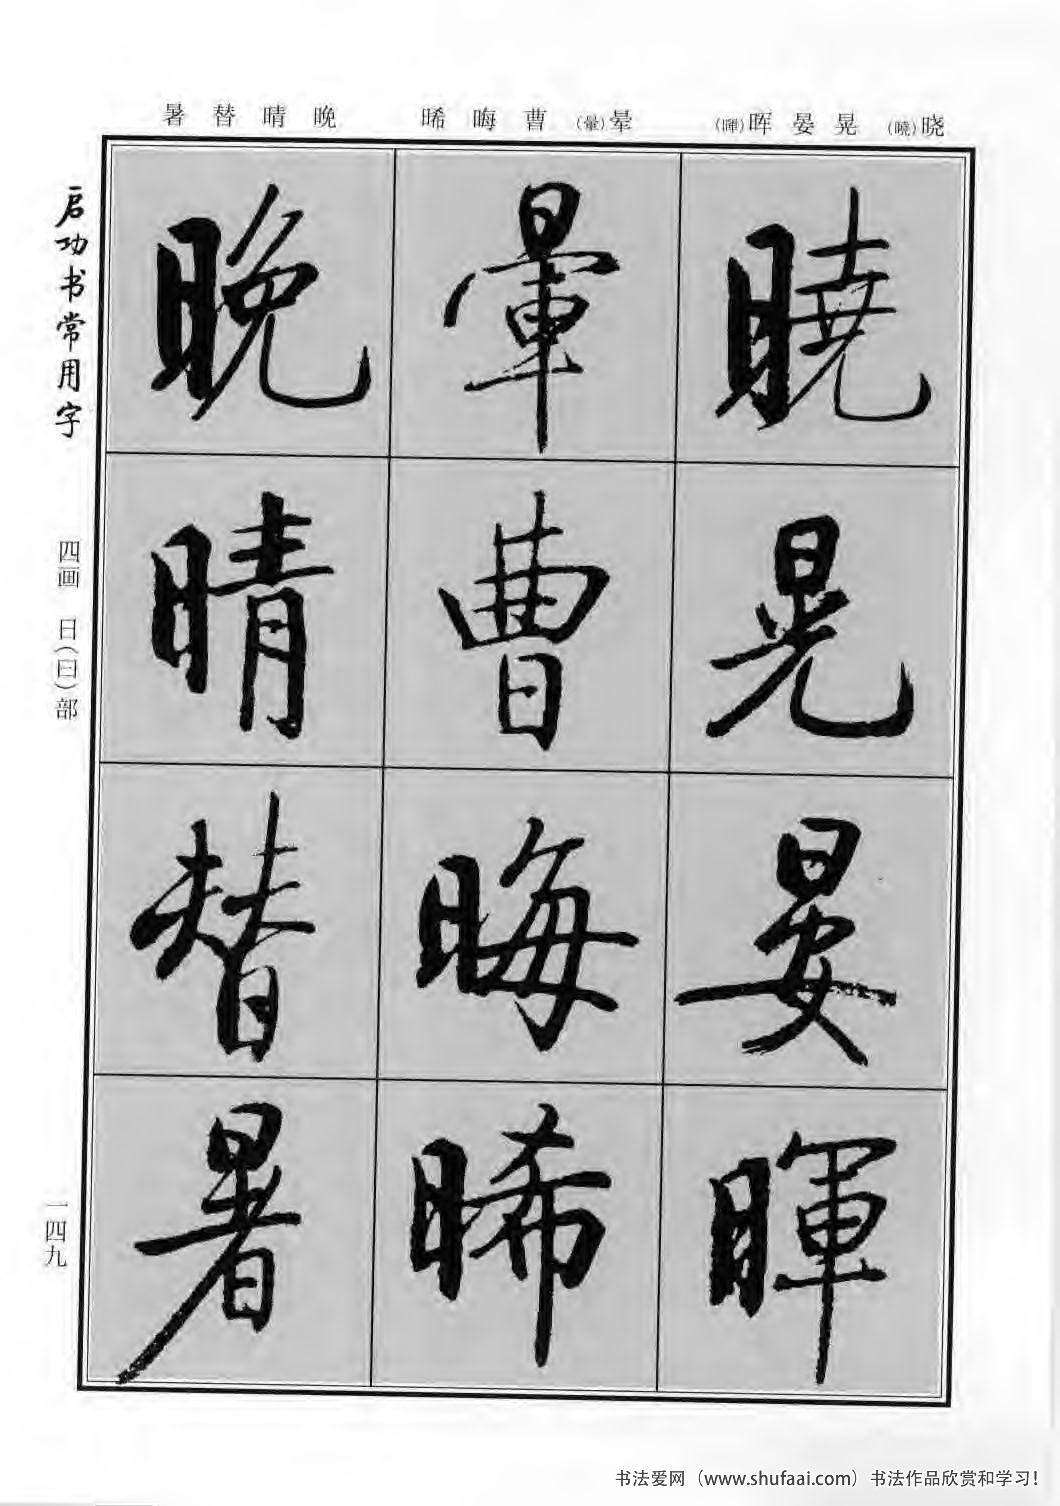 晓(曉) 晃 晏 晖(暉)
晕(暈) 曹 晦 晞
晚 晴 替 暑
曉
晃
晏
暉
暈
曹
晦
晞
晚
晴
替
暑
启功书常用字
四画 日(曰)部
一四九
书法爱网（www.shufaai.com）书法作品欣赏和学习!